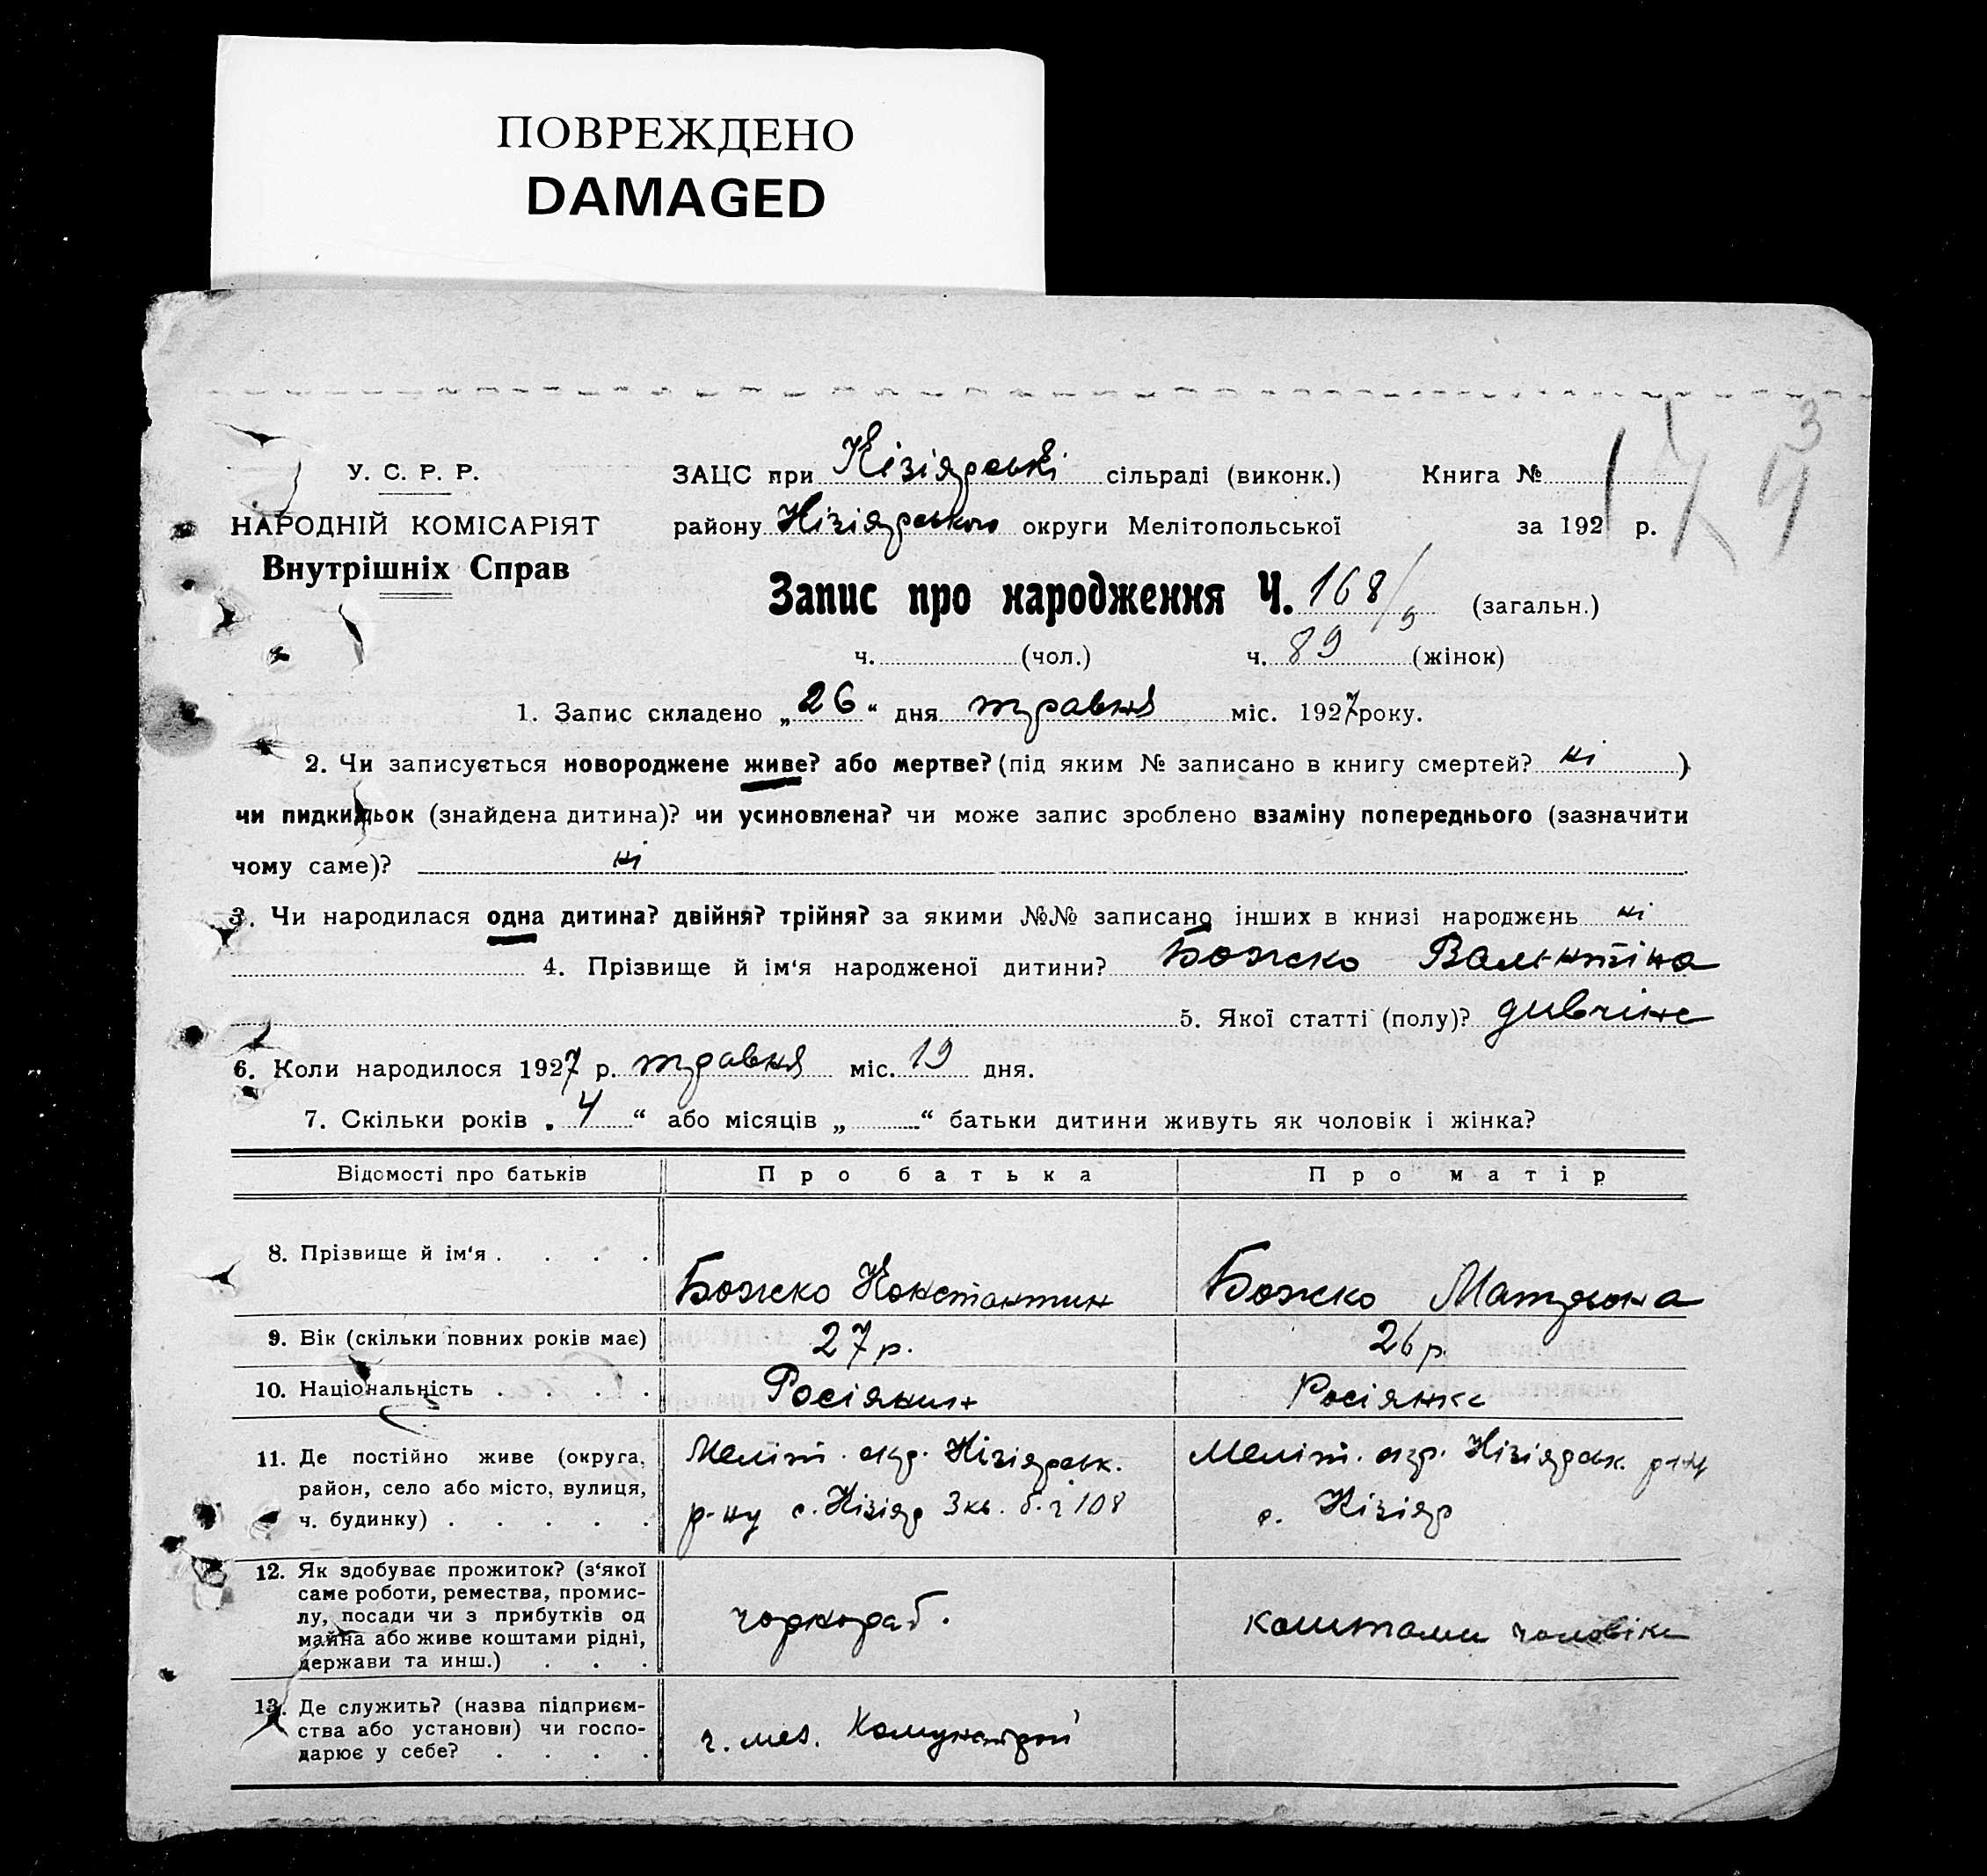 ПОВРЕЖДЕНО
DAMAGED
3
4
У. С. Р. Р.
НАРОДНІЙ КОМІСАРІЯТ
Внутрішніх Справ
ЗАЦС при Кізіярські сільраді (виконк.) Книга №
району Кізіярського округи Мелітопольської за 192 р.
Запис про народження Ч. 168/9 (загальн.)
ч. (чол.) ч. 89 (жінок)
1. Запис складено „26“ дня травня міс. 1927 року.
2. Чи записується новороджене живе? або мертве? (під яким № записано в книгу смертей? ні )
чи пидкидьок (знайдена дитина)? чи усиновлена? чи може запис зроблено взаміну попереднього (зазначити
чому саме)? ні
3. Чи народилася одна дитина? двійня? трійня? за якими №№ записано інших в книзі народжень ні
4. Прізвище й ім‘я народженої дитини? Божко Валентіна
5. Якої статті (полу)? дивчіна
6. Коли народилося 1927 р. травня міс. 19 дня.
7. Скільки років „4“ або місяців „ “ батьки дитини живуть як чоловік і жінка?
Відомості про батьків Про батька Про матір
8. Прізвище й ім‘я . . . . Божко Константин Божко Матрьона
9. Вік (скільки повних років має) 27 р. 26 р.
10. Національність . . . . Росіянин Росіянка
11. Де постійно живе (округа, Меліт. окр. Кізіярськ. Меліт. окр. Кізіярськ р-ну
район, село або місто, вулиця, р-ну с. Кізіяр 3 кв. б. ч 108 с. Кізіяр
ч. будинку) . . . . .
12. Як здобуває прожиток? (з‘якої
саме роботи, ремества, промис-
лу, посади чи з прибутків од чорнораб. коштами чоловіка
майна або живе коштами рідні,
держави та инш.) . . .
13. Де служить? (назва підприєм-
ства або установи) чи госпо-
дарює у себе? . . . . Комунстрой